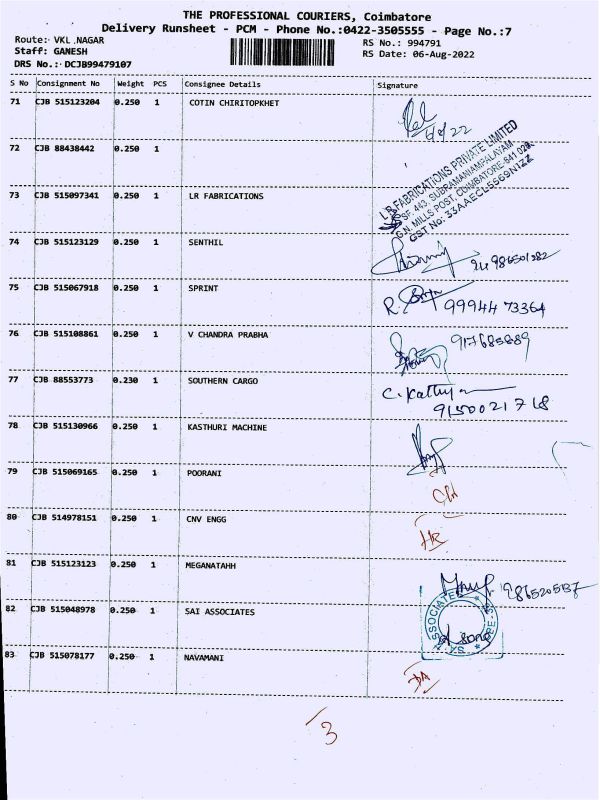 THE PROFESSIONAL COURIERS, Coimbatore
Delivery Runsheet - PCM - Phone No.:0422-3505555 - Page No.:7
Route: VKL .NAGAR
RS No.: 994791
Staff: GANESH
RS Date: 06-Aug-2022
DRS No.: DCJB99479107
S No Consignment No Weight PCS Consignee Details Signature
71 CJB 515123204 0.250 1 COTIN CHIRITOPKHET
72 CJB 88438442 0.250 1
L R FABRICATIONS PRIVATE LIMITED
SF. 443, SUBRAMANIAMPALAYAM,
G.N. MILLS POST, COIMBATORE-641 029.
GST No: 33AAECL5569N1ZZ
73 CJB 515097341 0.250 1 LR FABRICATIONS
74 CJB 515123129 0.250 1 SENTHIL
75 CJB 515067918 0.250 1 SPRINT R. 99944 73364
76 CJB 515108861 0.250 1 V CHANDRA PRABHA 917685889
77 CJB 88553773 0.230 1 SOUTHERN CARGO C. Kathy
9150021718
78 CJB 515130966 0.250 1 KASTHURI MACHINE
79 CJB 515069165 0.250 1 POORANI
80 CJB 514978151 0.250 1 CNV ENGG
81 CJB 515123123 0.250 1 MEGANATAHH
82 CJB 515048978 0.250 1 SAI ASSOCIATES
83 CJB 515078177 0.250 1 NAVAMANI DA
3